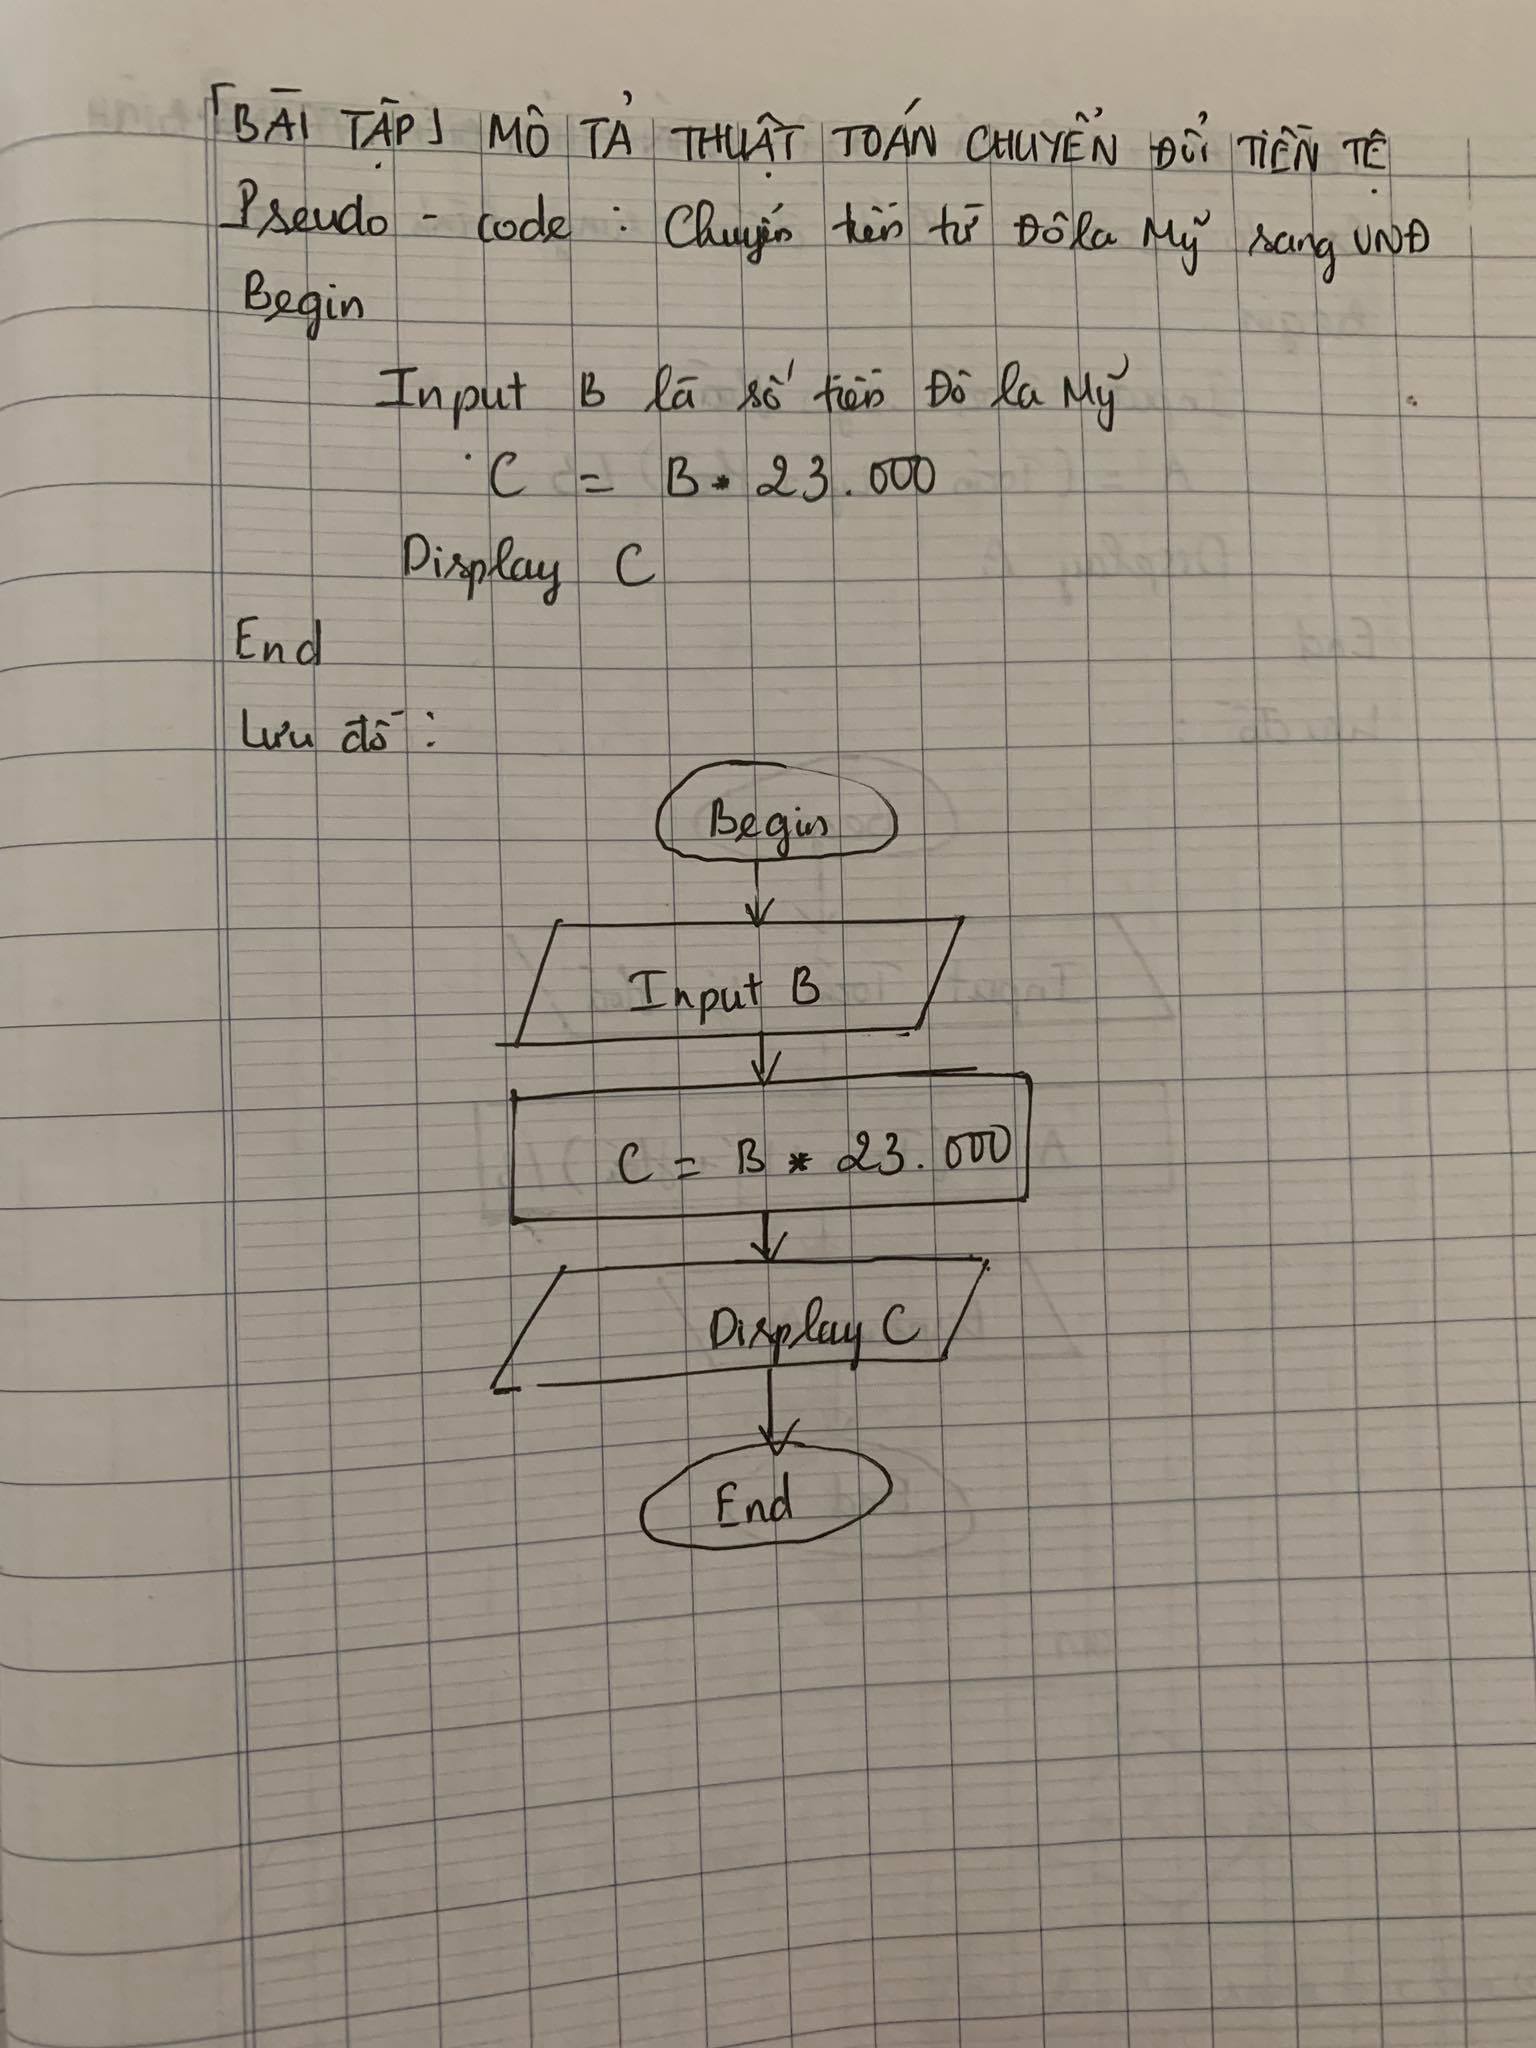 [BÀI TẬP] MÔ TẢ THUẬT TOÁN CHUYỂN ĐỔI TIỀN TỆ
Pseudo - code : Chuyển tiền từ Đô la Mỹ sang VNĐ
Begin
Input B là số tiền Đô la Mỹ
C = B * 23.000
Display C
End
Lưu đồ :
Begin
Input B
C = B * 23.000
Display C
End